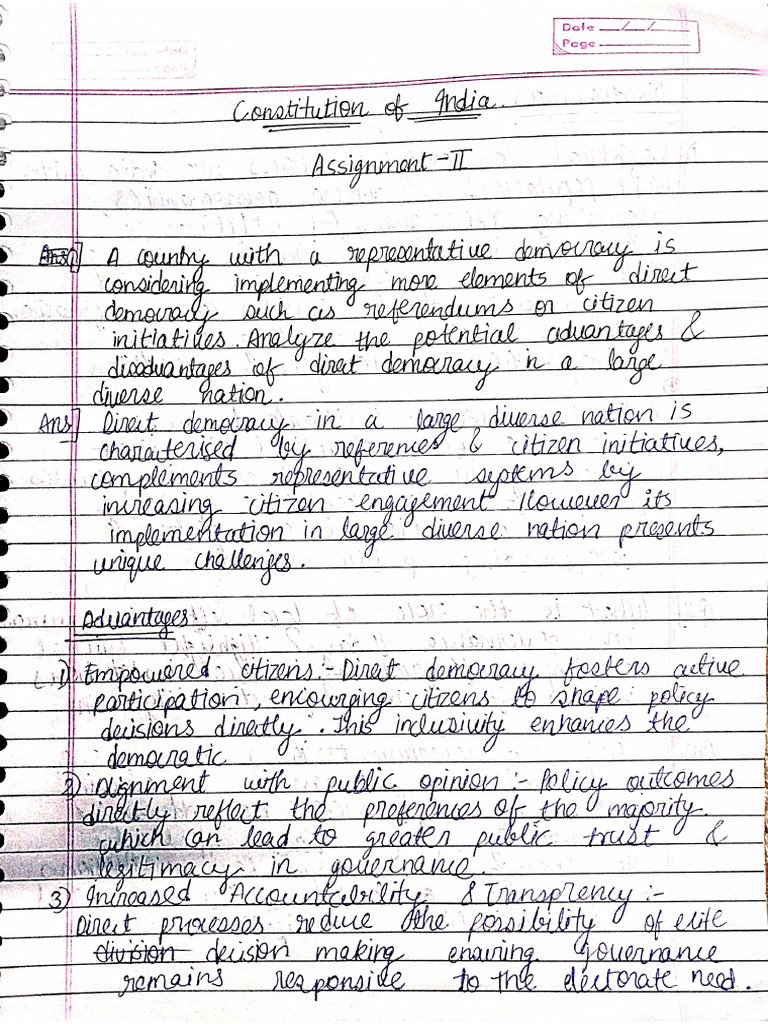 Date __/__/__
Page ______
Constitution of India.
Assignment - II
Ans 1] A country with a representative democracy is
considering implementing more elements of direct
democracy such as referendums or citizen
initiatives. Analyze the potential advantages &
disadvantages of direct democracy in a large
diverse nation.
Ans] Direct democracy in a large diverse nation is
characterised by references & citizen initiatives,
complements representative systems by
increasing citizen engagement However its
implementation in large diverse nation presents
unique challenges.
Advantages
1) Empowered citizens:- Direct democracy fosters active
participation, encourging citizens to shape policy
decisions directly. This inclusivity enhances the
democratic
2) Alignment with public opinion:- Policy outcomes
directly reflect the preferences of the majority.
which can lead to greater public trust &
legitimacy in governance.
3) Increased Accountability & Transprency:-
Direct processes reduce the possibility of elite
division decision making ensuring governance
remains responsive to the electorate need.